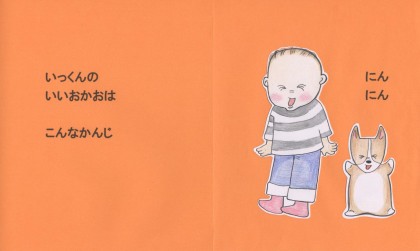 いっくんの
いいおかおは
こんなかんじ
にん
にん